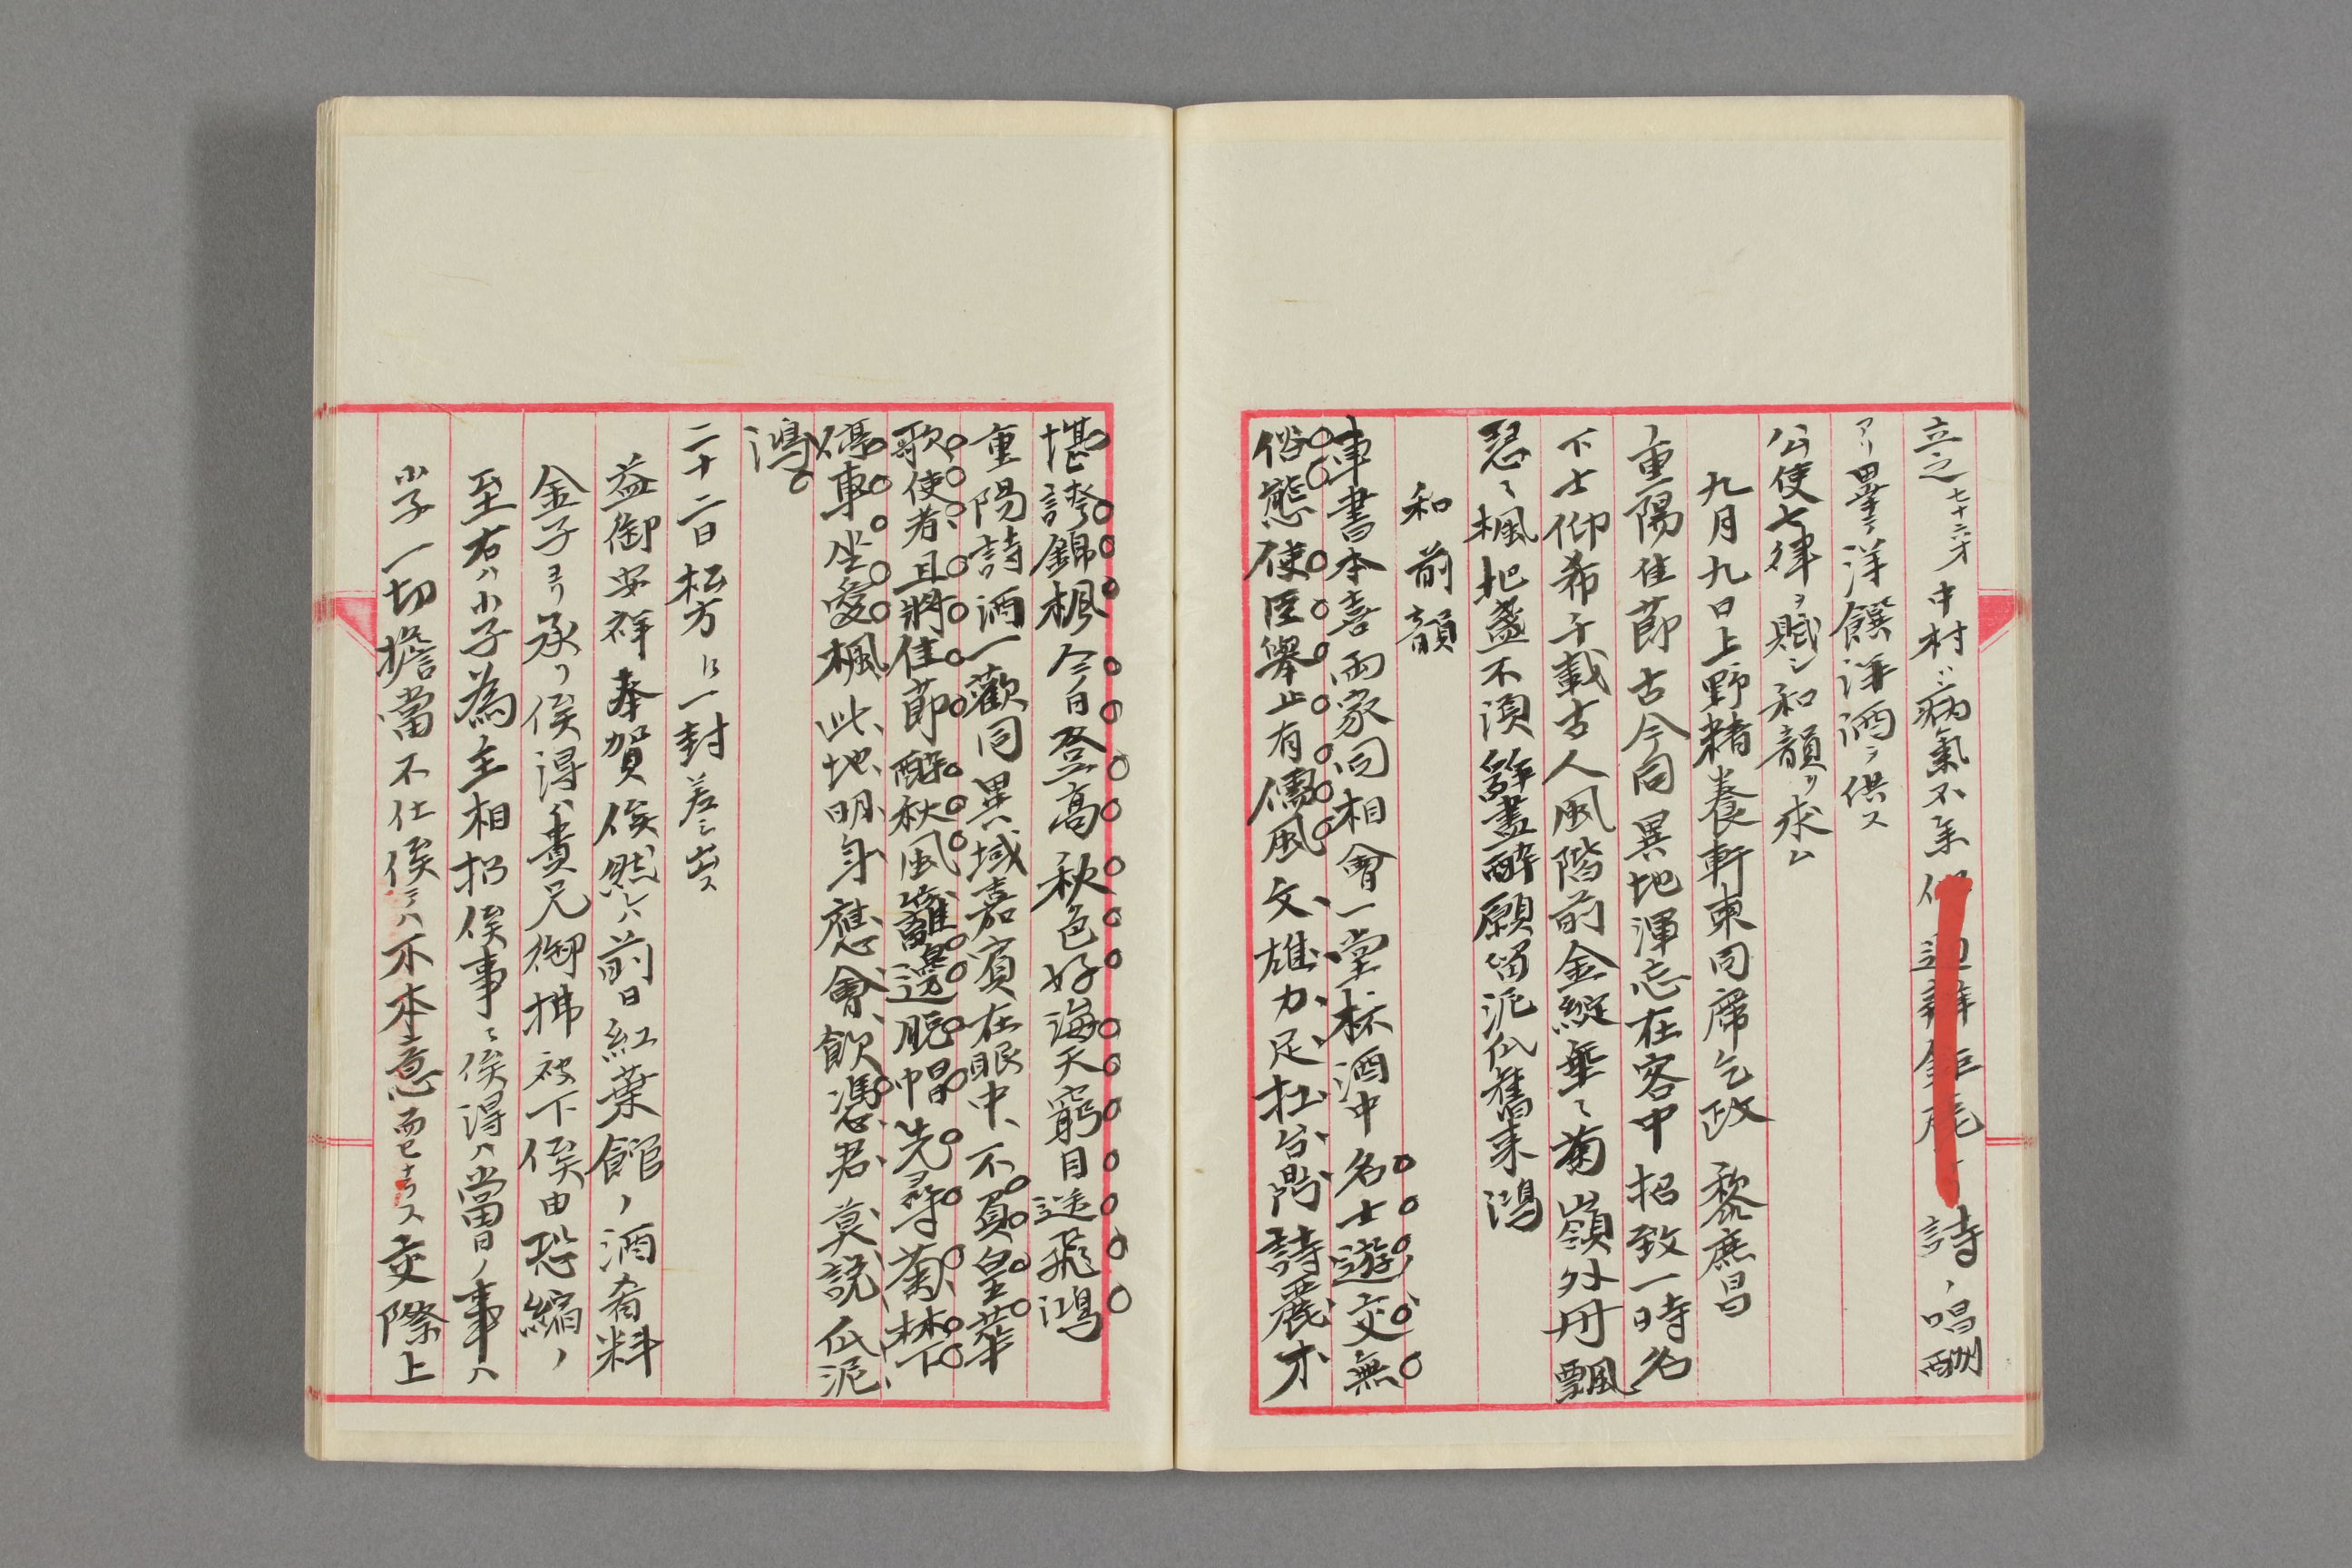 立之七十六才中村ハ病氣不參詩ノ唱酬
アリ畢テ洋饌洋酒ヲ供ス
公使七律ヲ賦シ和韻ヲ求ム
九月九日上野精養軒東同席乞政 黎庶昌
重陽佳節古今同異地渾忘在客中招致一時名
下士仰希千載古人風階前金綻垂〻菊嶺外丹飄
忍〻楓把盞不須辭盡醉願留泥爪舊来鴻
和前韻
車書本喜兩家同相會一堂杯酒中名士遊交無
俗態使臣舉止有儒風文雄力足杜台閣詩麗才
堪誇錦楓今日登高秋色好海天窮目送飛鴻
重陽詩酒一歡同異域嘉賓在眼中不負皇華
歌使者且將佳節酔秋風籬邊脱帽先尋菊林下
停車坐愛楓此地明年應會飲憑君莫説爪泥
鴻
二十二日松方に一封差シ出ス
益御安祥奉賀候然ハ前日紅葉館ノ酒肴料
金子ヨリ承リ候得ハ貴兄御拂被下候由恐縮ノ
至右ハ小子為主相招候事〻候得ハ當日ノ事ハ
小子一切擔當不仕候テハ不本意而已ナラス交際上